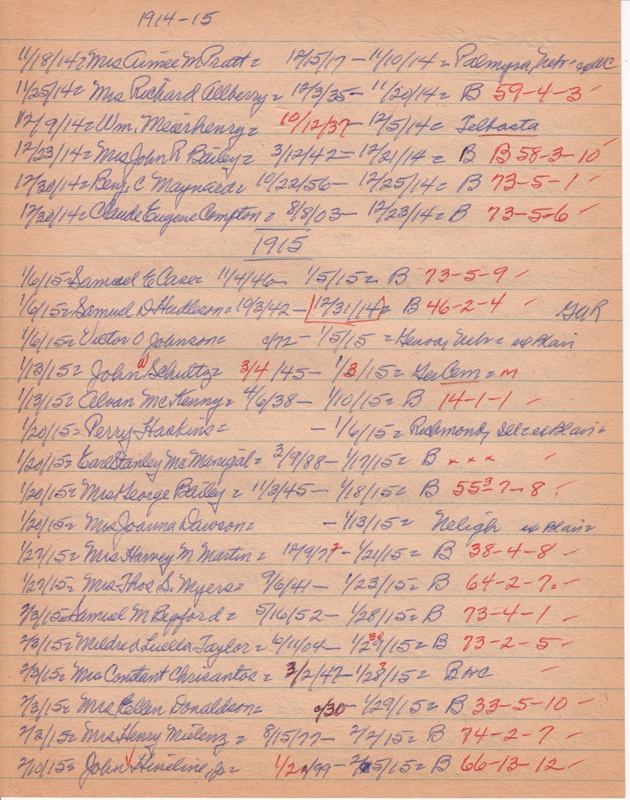 1914-15
11/18/14= Mrs Aimee M Pratt = 12/5/17 - 11/10/14 = Palmyra, Nebr
11/25/14= Mrs Richard Allberry = 12/3/35 - 11/20/14 = B 59-4-3
12/9/14= Wm. Meierhenry = 10/12/37 - 12/5/14 = Telbasta
12/23/14= Mrs John R Bailey = 3/12/42 - 12/21/14 = B B 58-3-10
12/30/14= Benj. C Maynard = 10/22/56 - 12/25/14 = B 73-5-1
12/30/14= Claude Eugene Compton = 8/8/03 - 12/23/14 = B 73-5-6
1915
1/6/15= Samuel E Case = 11/4/46 1/5/15 = B 73-5-9
1/6/15= Samuel D Hudleson = 10/3/42 - 12/31/14 = B 46-2-4 GAR
1/6/15= Victor O Johnson = c/72 - 1/5/15 = Genoa, Nebr = ex Blair
1/13/15= John Schultz = 3/4/45 - 1/3/15 = Ger Cem = m
1/13/15= Alvan McKenny = 4/6/38 - 1/10/15 = B 14-1-1
1/20/15= Perry Haskins = - 1/6/15 = Richmond, Del ex Blair
1/20/15= Earl Stanley McMenigal = 2/9/88 - 1/17/15 = B x x x
1/20/15= Mrs George Bailey = 11/3/45 - 1/18/15 = B 55-3-7-8
1/20/15= Mrs Joanna Dawson = - 1/13/15 = Neligh ex Blair
1/27/15= Mrs Harvey M Martin = 12/9/77 - 1/21/15 = B 38-4-8
1/27/15= Mrs Thos S. Myers = 9/6/41 - 1/23/15 = B 64-2-7
2/3/15= Samuel M Bedford = 5/16/52 - 1/28/15 = B 73-4-1
2/3/15= Mildred Luella Taylor = 6/11/04 - 1/29/15 = B 73-2-5
2/3/15= Mrs Constant Chrisantos = 3/2/47 - 1/28/15 = B HC
2/3/15= Mrs Ellen Donaldson = c/30 - 1/29/15 = B 33-5-10
2/3/15= Mrs Henry Mielenz = 8/15/77 - 2/2/15 = B 74-2-7
2/10/15= John Hineline, Jr = 1/2 /99 - 2/5/15 = B 66-13-12